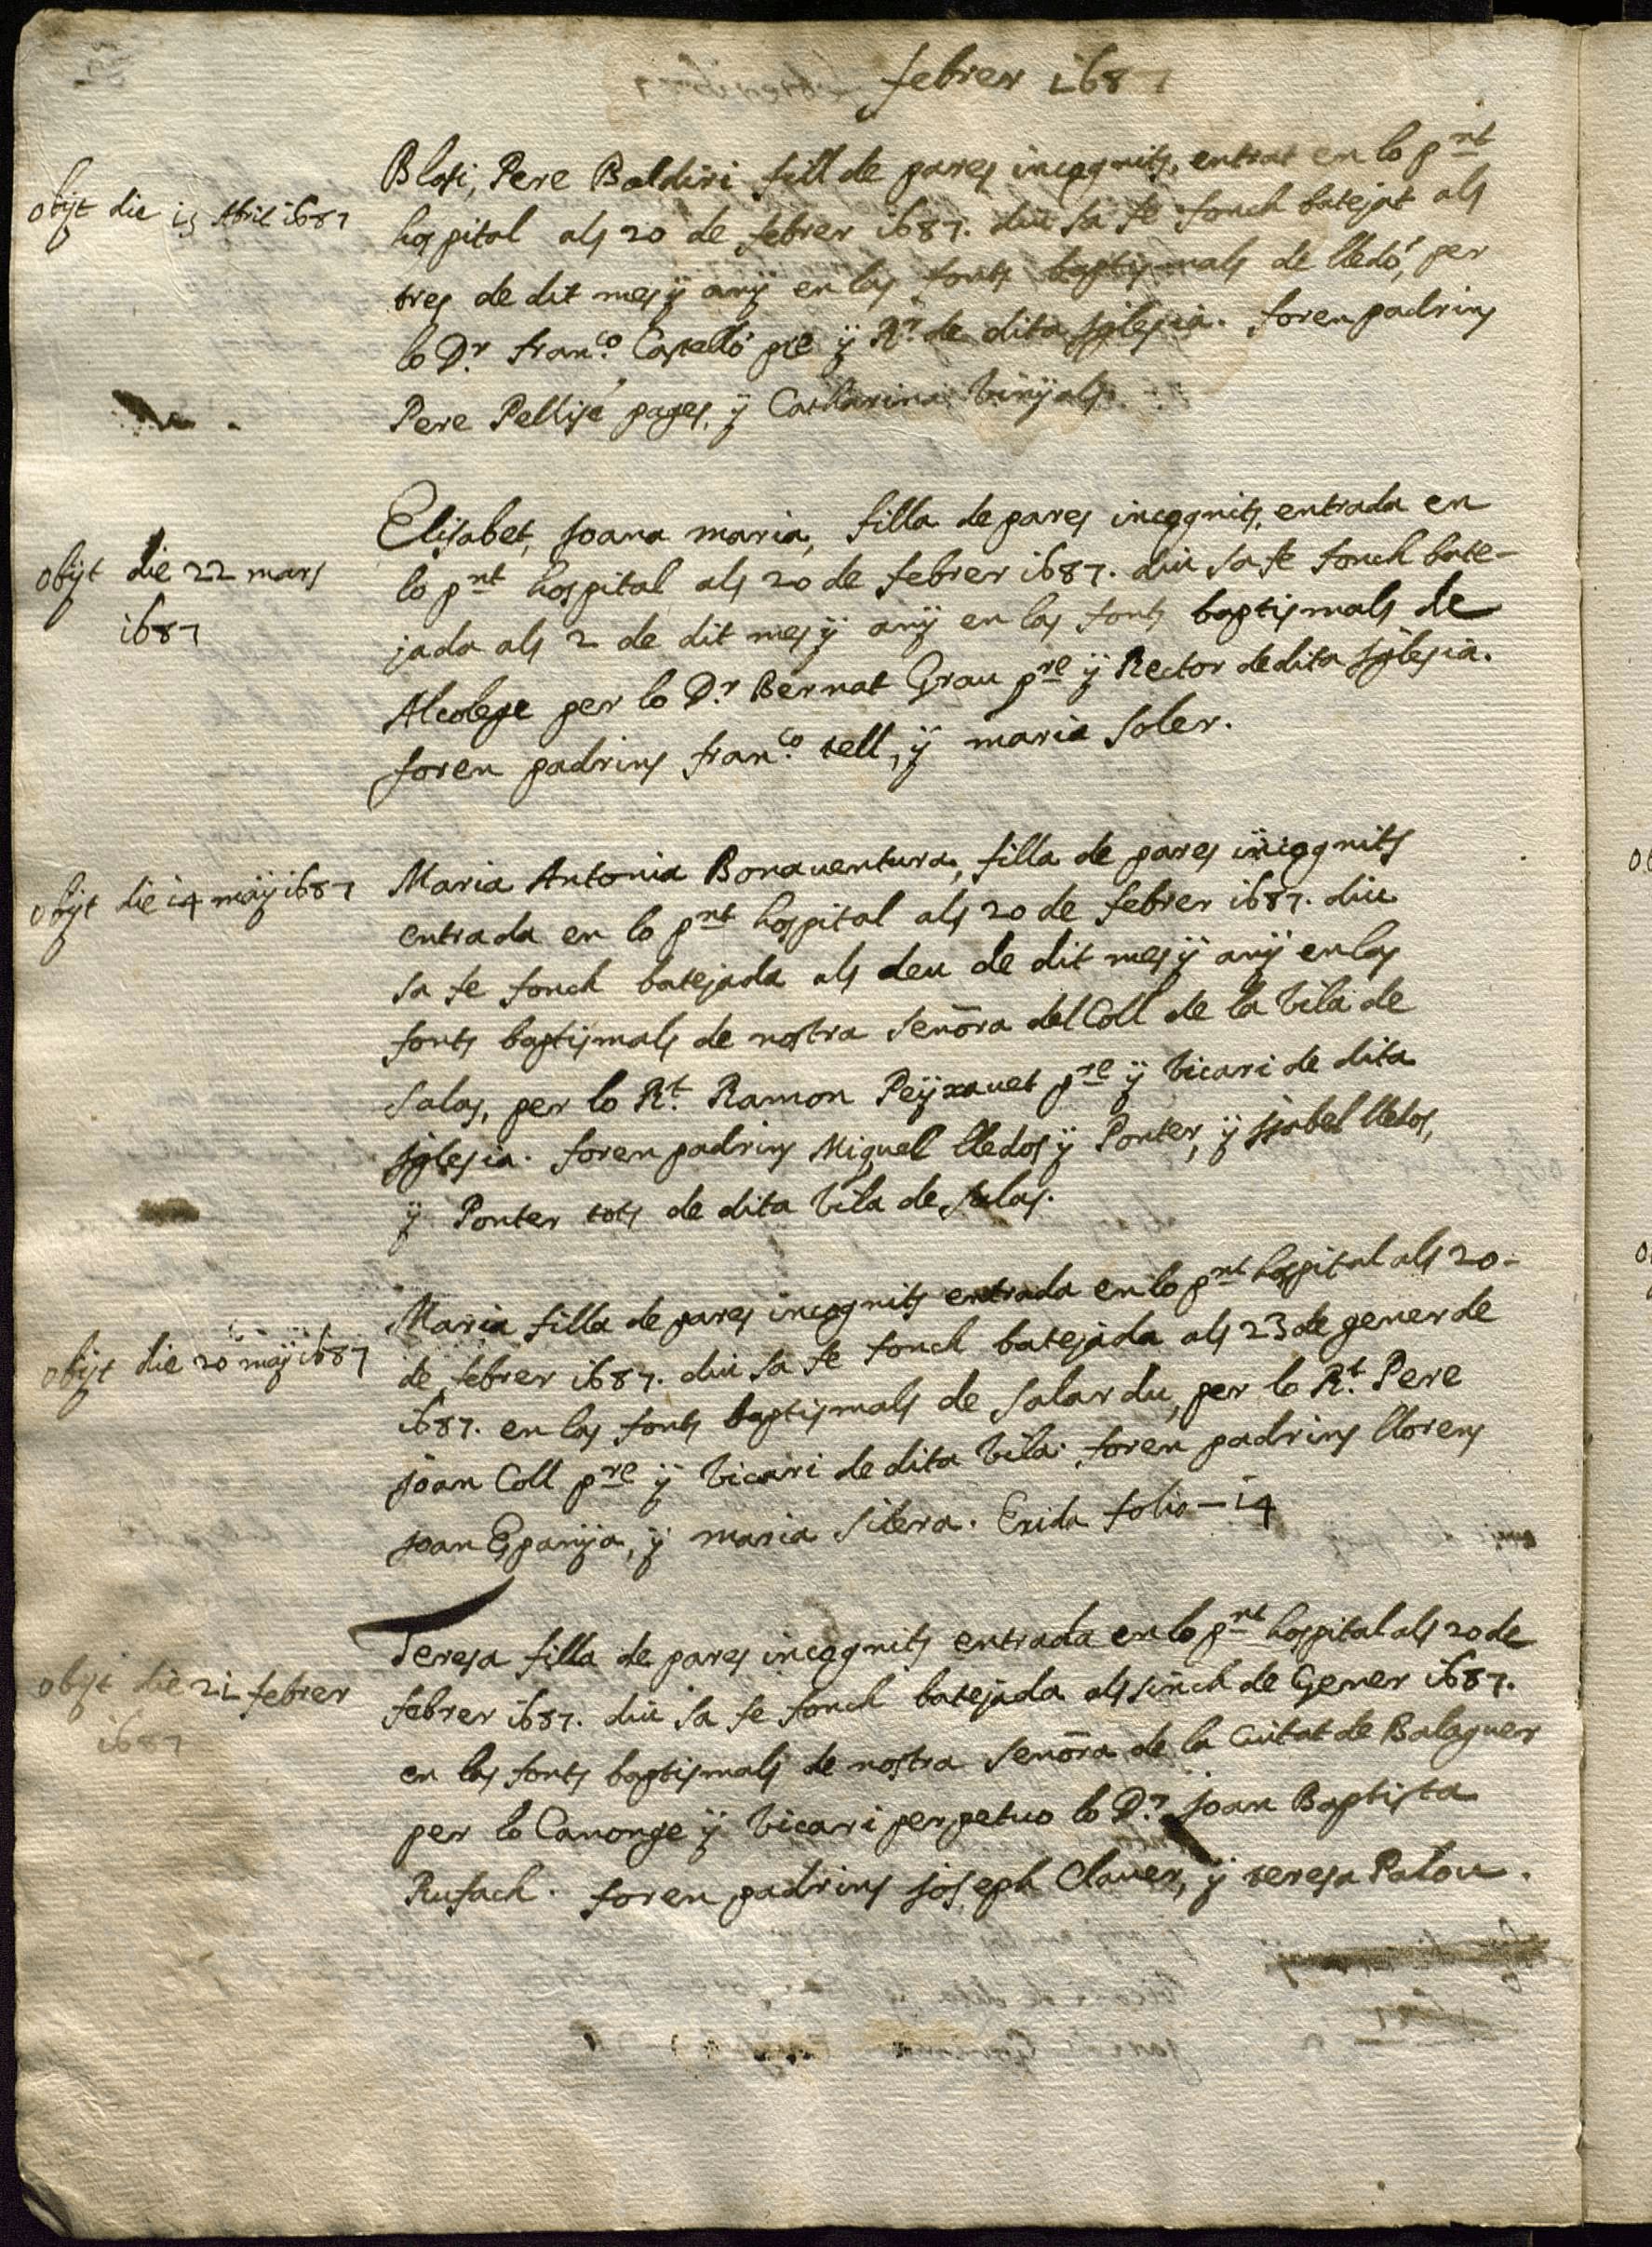 febrer 1687
obijt die 15 Abril 1687
Blasi, Pere Baldiri fill de pares incognits, entrat en lo pnt
hospital als 20 de febrer 1687. diu sa fe fonch batejat als
tres de dit mes ÿ anÿ en las fonts baptismals de lledó, per
lo Dr. Franco. Castelló pre ÿ Rr. de dita Jglesia. foren padrins
Pere Pellisé pages, ÿ Catharina Vinÿals.
obijt die 22 mars
1687
Elisabet, Joana maria, filla de pares incognits, entrada en
lo pnt hospital als 20 de febrer 1687. diu sa fe fonch bate-
jada als 2 de dit mes ÿ anÿ en las fonts baptismals de
Alcolege per lo Dr. Bernat Grau pre ÿ Rector de dita Jglesia.
foren padrins Franco. tell, ÿ maria Soler.
obijt die 14 maÿ 1687
Maria Antonia Bonaventura, filla de pares incognits
entrada en lo pnt hospital als 20 de febrer 1687. diu
sa fe fonch batejada als deu de dit mes ÿ anÿ en las
fonts baptismals de nostra Senōra del Coll de la Vila de
Salas, per lo Rt. Ramon Peÿxauet pre ÿ Vicari de dita
Jglesia. foren padrins Miquel lledos ÿ Ponter, ÿ Jsabel lledos,
ÿ Ponter tots de dita Vila de Salas.
obijt die 20 maÿ 1687
Maria filla de pares incognits entrada en lo pnt hospital als 20-
de febrer 1687. diu sa fe fonch batejada als 23 de gener de
1687. en las fonts baptismals de Salardu, per lo Rt. Pere
Joan Coll pre ÿ Vicari de dita Vila. foren padrins llorens
Joan Espanÿa, ÿ maria Sitera. Exida folio - 14
obijt die 21 febrer
1687
Teresa filla de pares incognits entrada en lo pnt hospital als 20 de
febrer 1687. diu sa fe fonch batejada als sinch de Gener 1687.
en las fonts baptismals de nostra Senōra de la Ciutat de Balaguer
per lo Canonge ÿ Vicari perpetuo lo Dr. Joan Baptista
Rufach. foren padrins Joseph Claver, ÿ teresa Palou.